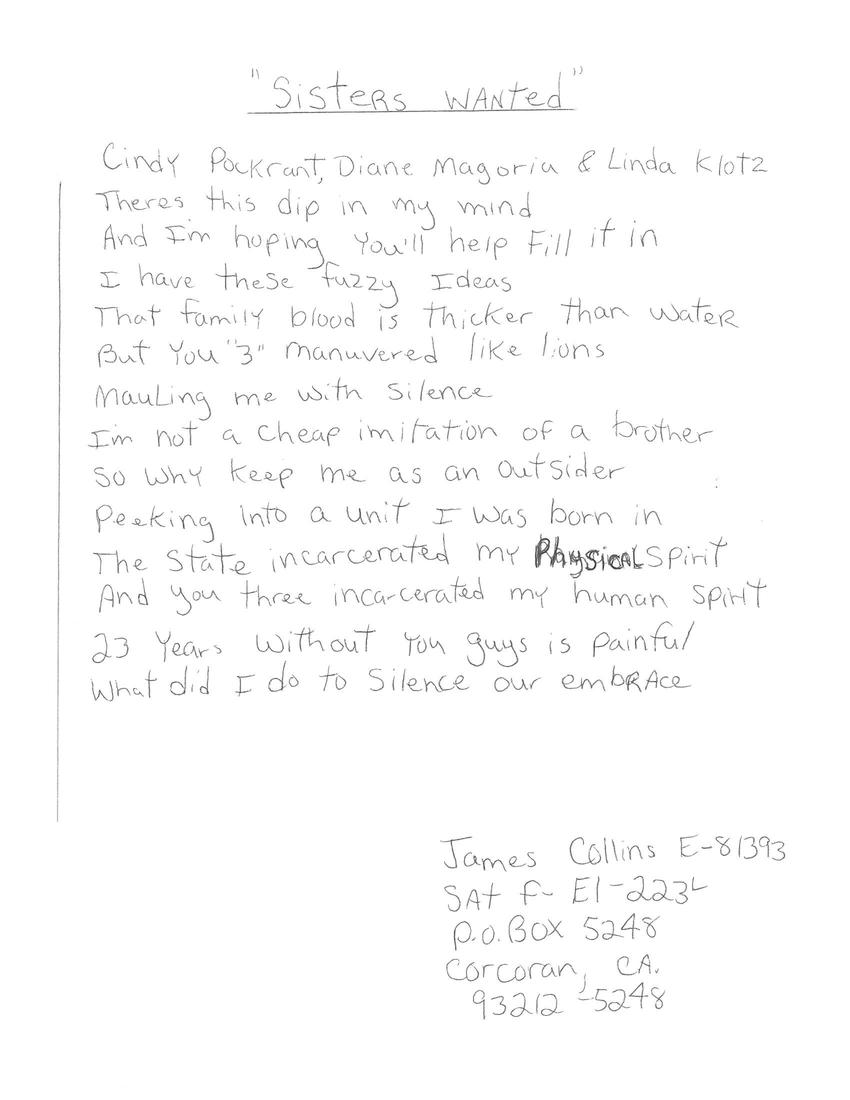 "Sisters Wanted"
Cindy Pockrant, Diane Magoria & Linda Klotz
Theres this dip in my mind
And I'm hoping you'll help Fill it in
I have these fuzzy Ideas
That family blood is thicker than water
But you "3" manuvered like lions
Mauling me with silence
I'm not a cheap imitation of a brother
So why keep me as an outsider
Peeking into a unit I was born in
The State incarcerated my Physical Spirit
And you three incarcerated my human spirit
23 Years without you guys is painful
What did I do to silence our embrace
James Collins E-81393
SAT F- E1-223L
P.O. Box 5248
Corcoran, CA.
93212-5248